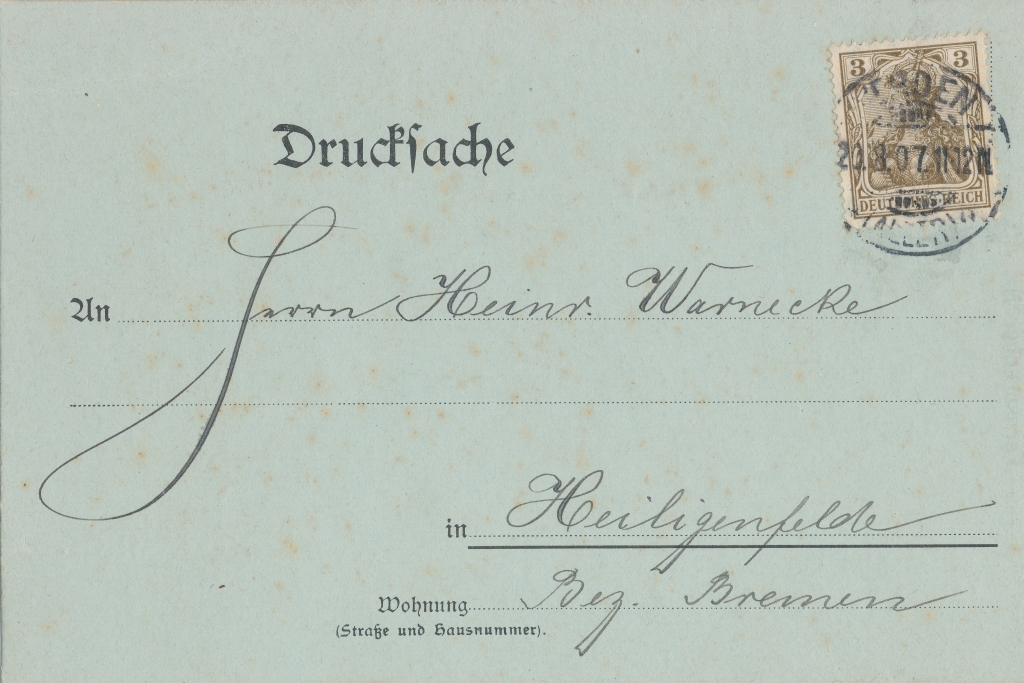 3 3
20.8.07.11-12N
DEUTSCHES REICH
(ALLER)
Drucksache
An Herrn Heinr. Warnecke
in Heiligenfelde
Wohnung Bez. Bremen
(Straße und Hausnummer).